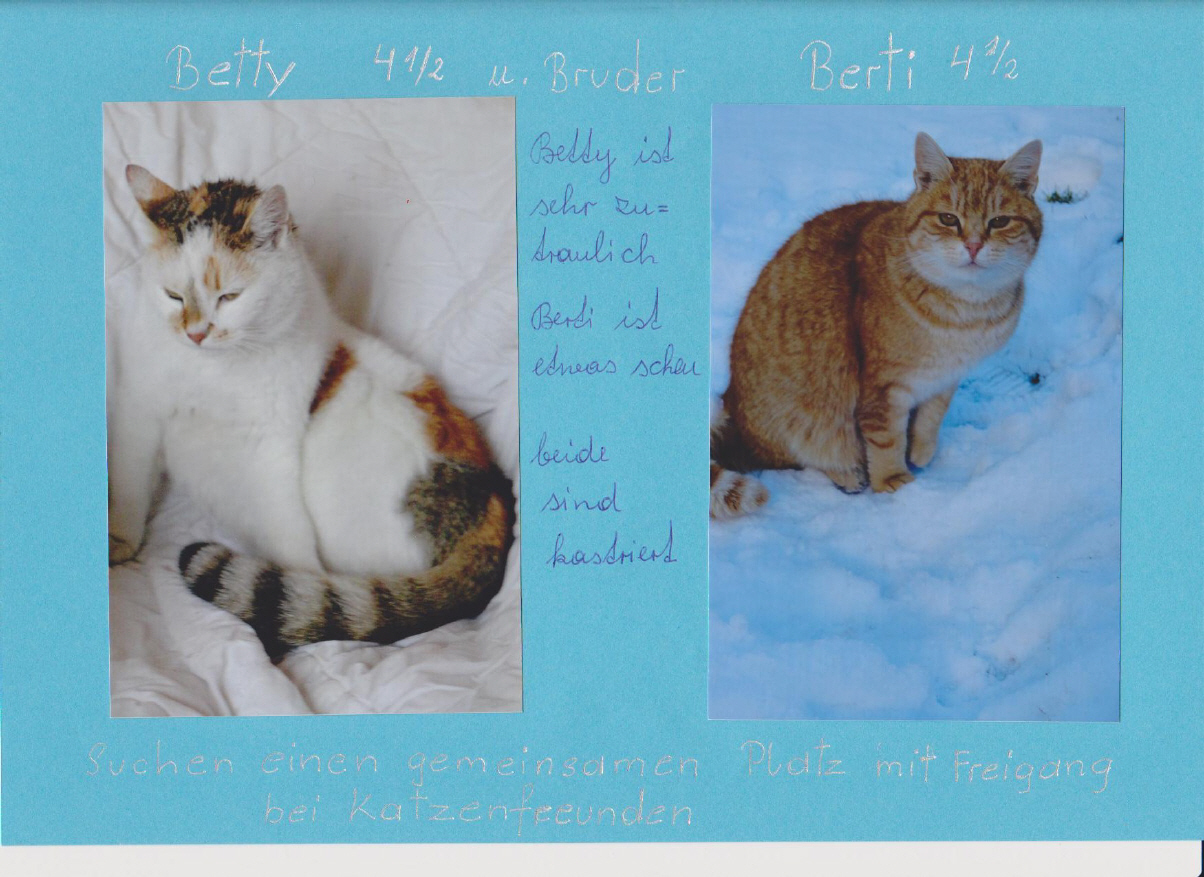 Betty 4 1/2 u. Bruder Berti 4 1/2
Betty ist
sehr zu=
traulich
Berti ist
etwas scheu
beide
sind
kastriert
Suchen einen gemeinsamen Platz mit Freigang
bei Katzenfreunden